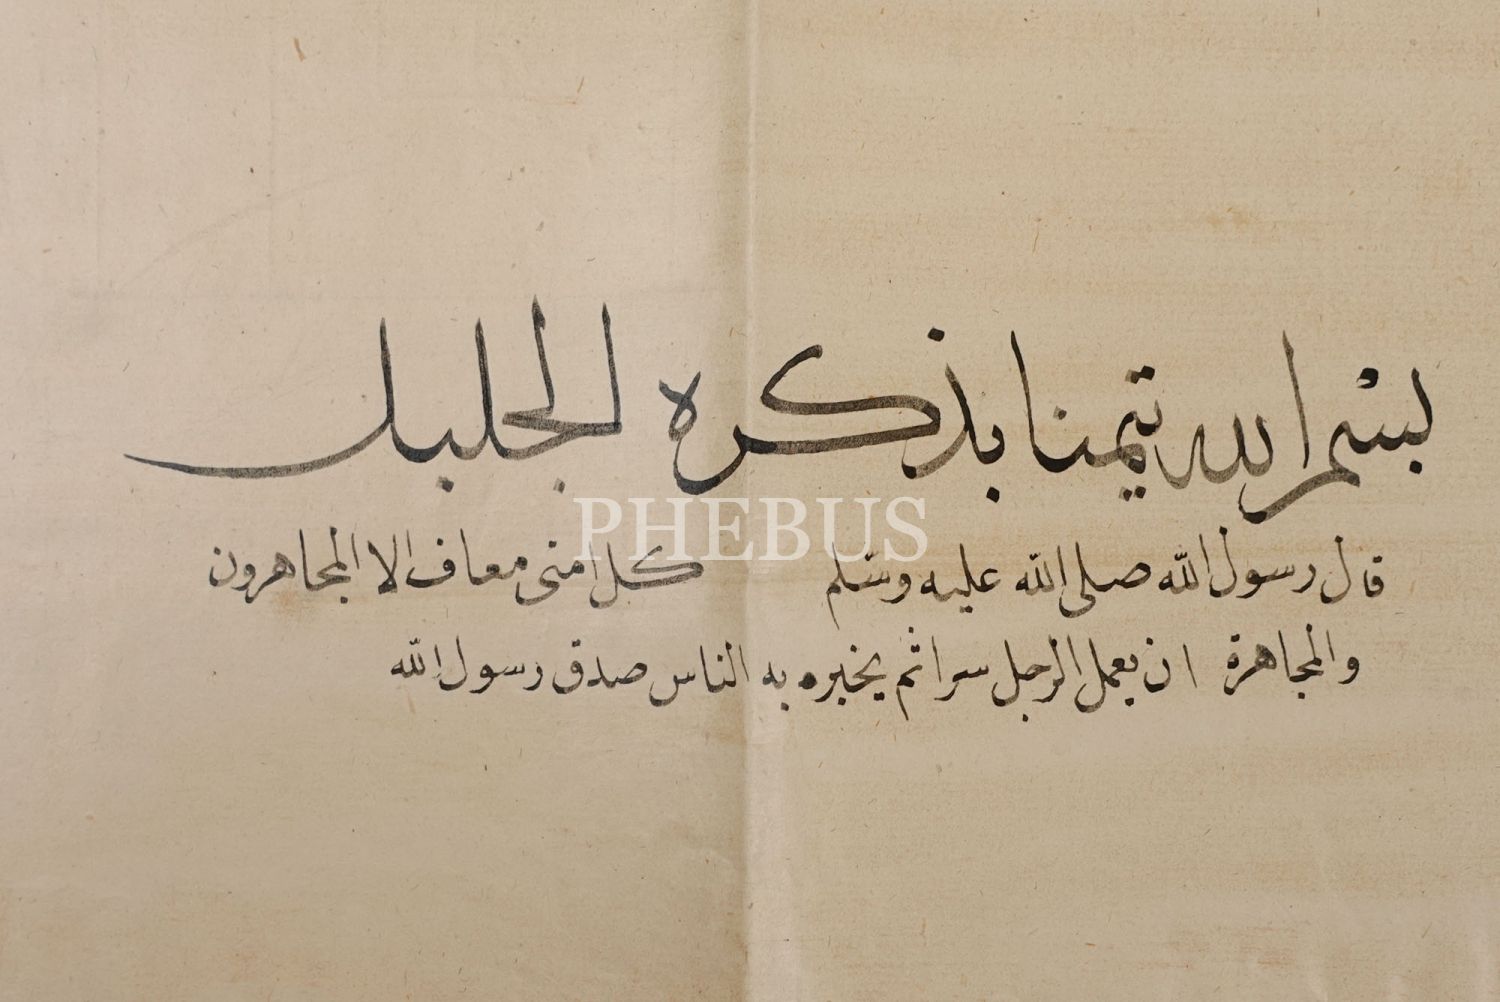 بسم الله تيمنا بذكره الجليل
قال رسول الله صلى الله عليه وسلم كل امتى معاف الا المجاهرون
والمجاهرة ان يعمل الرجل سرا ثم يخبره به الناس صدق رسول الله
PHEBUS